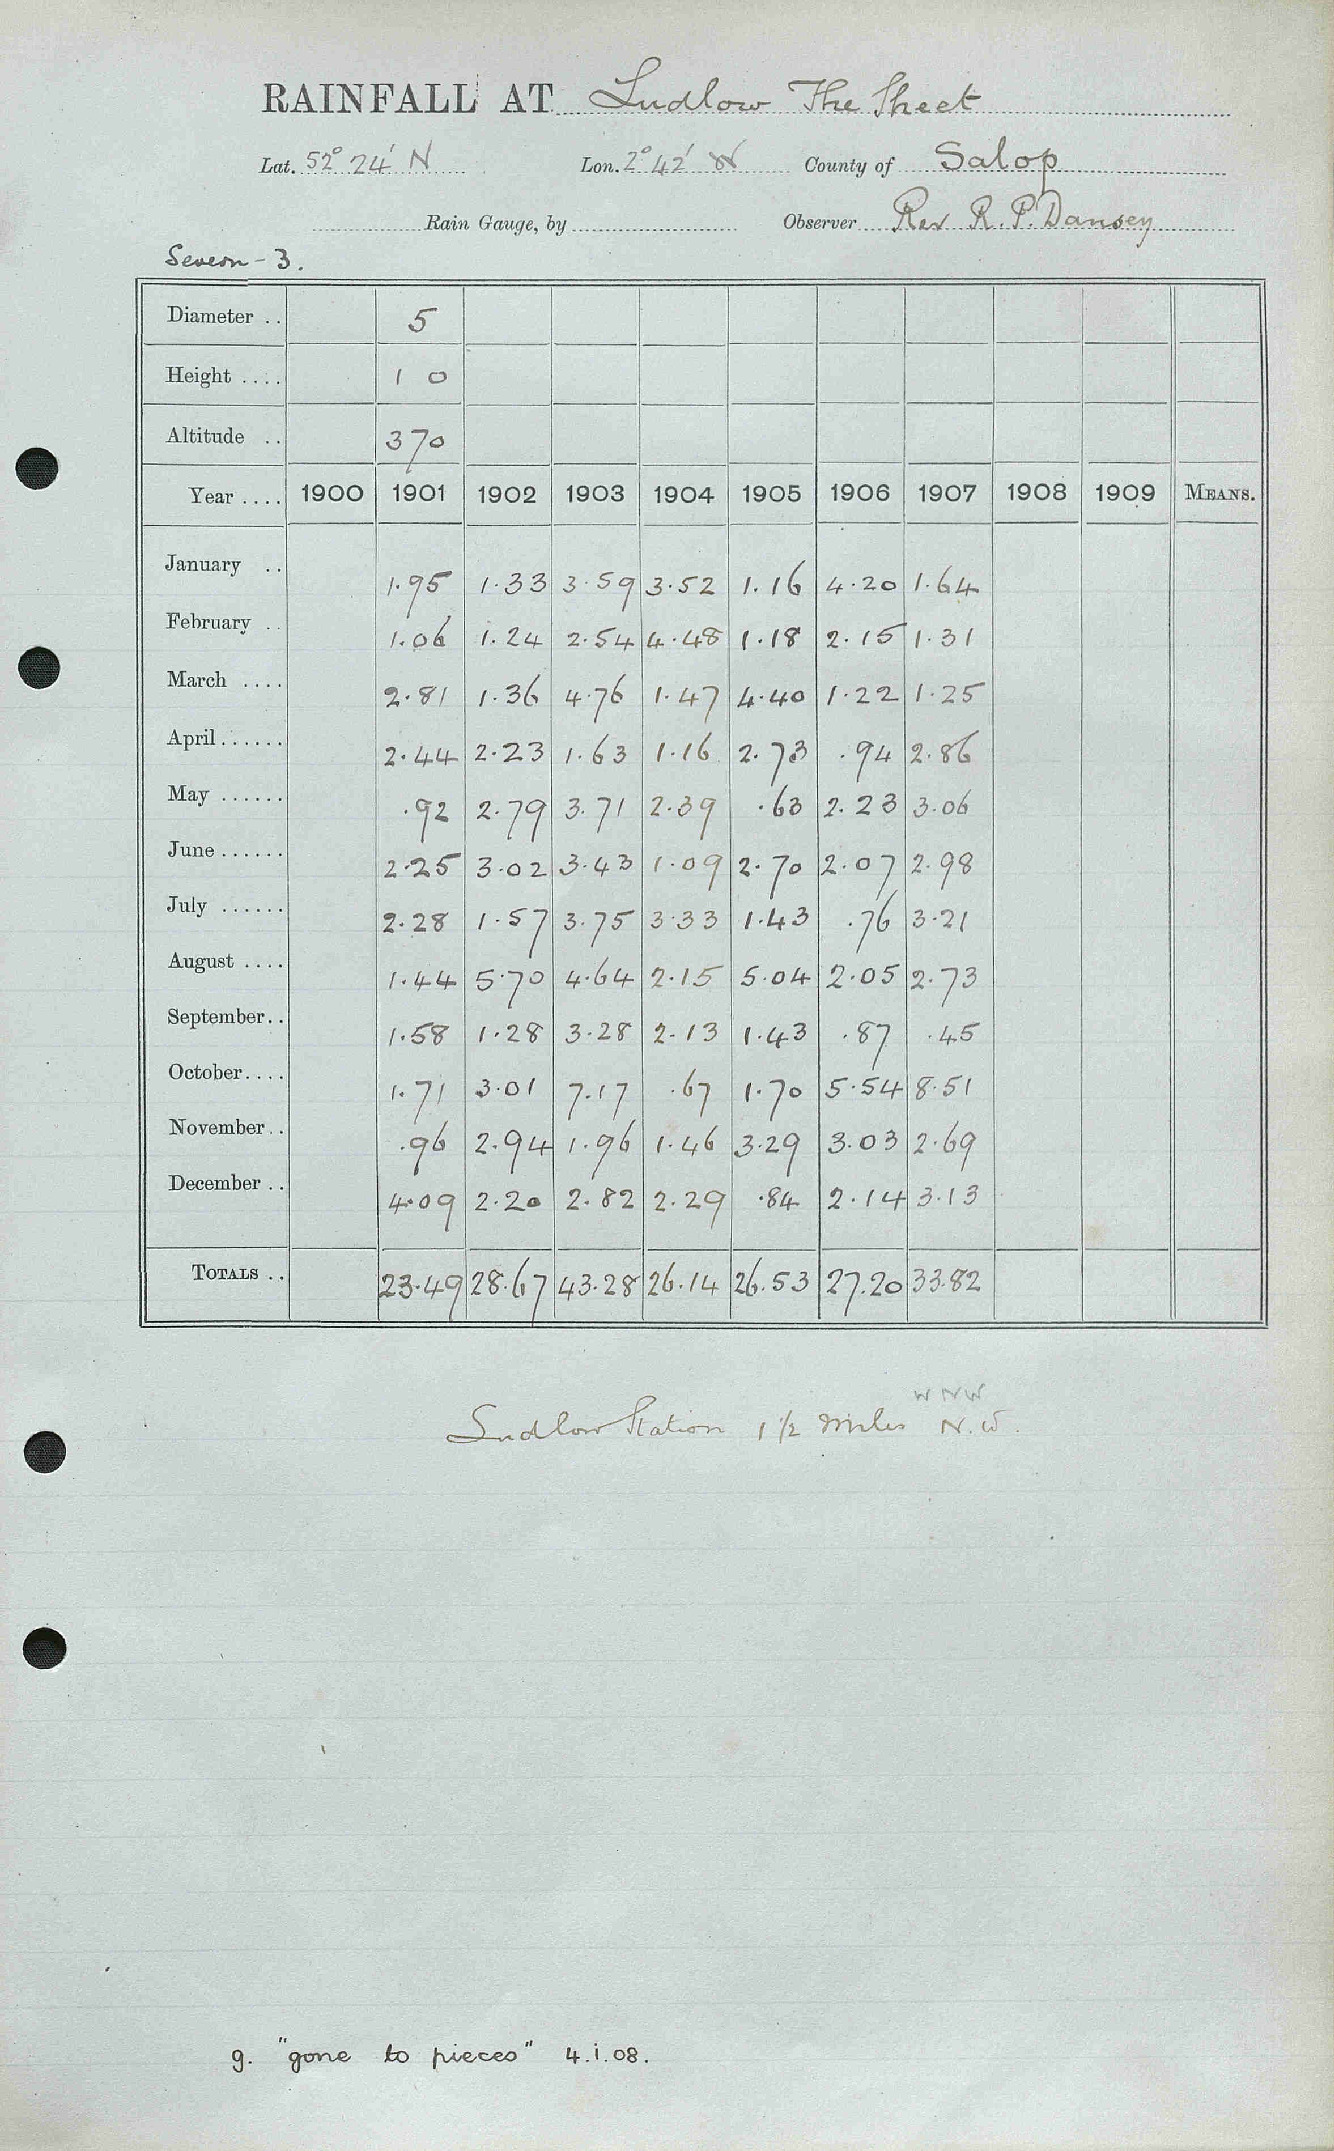 RAINFALL AT Ludlow The Sheet
Lat. 52° 24' N Lon. 2° 42' W County of Salop
Rain Gauge, by Observer Rev R. P. Dansey
Severn - 3.
Diameter .. 5
Height .... 1 0
Altitude .. 370
Year .... 1900 1901 1902 1903 1904 1905 1906 1907 1908 1909 MEANS.
January .. 1.95 1.33 3.59 3.52 1.16 4.20 1.64
February .. 1.06 1.24 2.54 4.48 1.18 2.15 1.31
March .... 2.81 1.36 4.76 1.47 4.40 1.22 1.25
April ...... 2.44 2.23 1.63 1.16 2.73 .94 2.86
May ...... .92 2.79 3.71 2.39 .63 2.23 3.06
June ...... 2.25 3.02 3.43 1.09 2.70 2.07 2.98
July ...... 2.28 1.57 3.75 3.33 1.43 .76 3.21
August .... 1.44 5.70 4.64 2.15 5.04 2.05 2.73
September .. 1.58 1.28 3.28 2.13 1.43 .87 .45
October .... 1.71 3.01 7.17 .67 1.70 5.54 8.51
November .. .96 2.94 1.96 1.46 3.29 3.03 2.69
December .. 4.09 2.20 2.82 2.29 .84 2.14 3.13
TOTALS .. 23.49 28.67 43.28 26.14 26.53 27.20 33.82
WNW
Ludlow Station 1 1/2 Miles N.W.
g. "gone to pieces" 4.i.08.